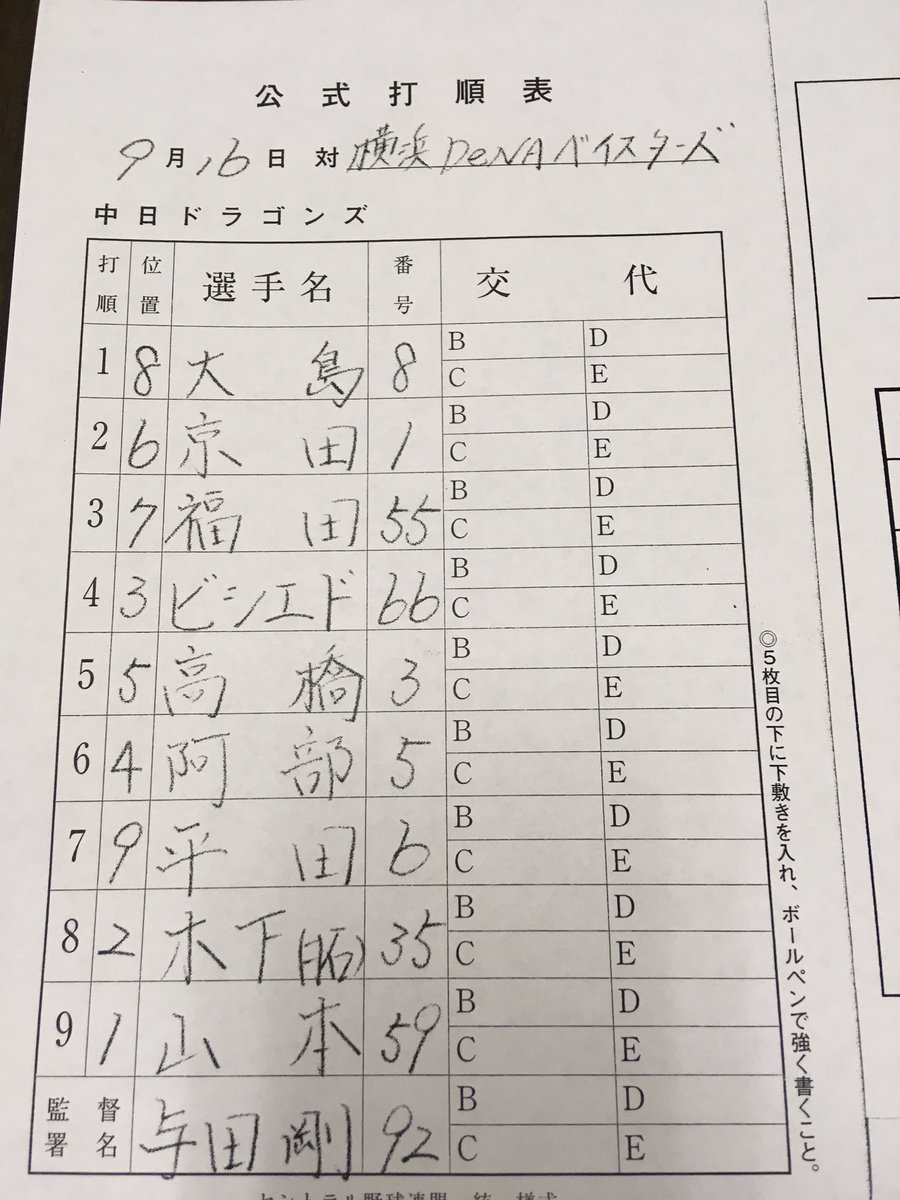 公式打順表
9月16日 対 横浜DeNAベイスターズ
中日ドラゴンズ
打順 位置 選手名 番号 交代
1 8 大島 8 B D
C E
2 6 京田 1 B D
C E
3 7 福田 55 B D
C E
4 3 ビシエド 66 B D
C E
5 5 高橋 3 B D
C E
6 4 阿部 5 B D
C E
7 9 平田 6 B D
C E
8 2 木下(拓) 35 B D
C E
9 1 山本 59 B D
C E
監督署名 与田剛 92 B D
C E
◎5枚目の下に下敷きを入れ、ボールペンで強く書くこと。
セントラル野球連盟 統一様式